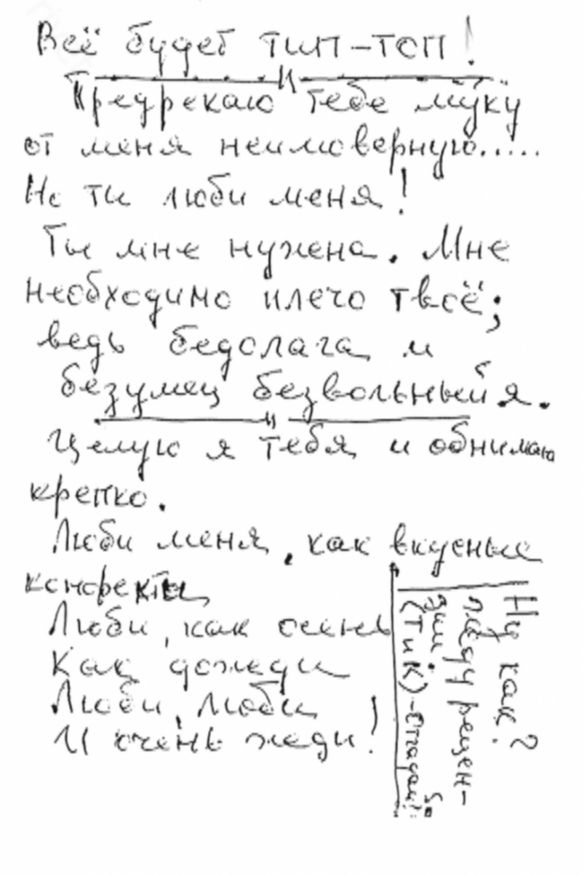 Всё будет тип-топ!
Предрекаю тебе муку
от меня неимоверную.....
Но ты люби меня!
Ты мне нужена. Мне
необходимо плечо твоё;
ведь бедолага и
безумец безвольный я.
Целую я тебя и обнимаю
крепко.
Люби меня, как вкусные
конфекты
Люби, как осень
Как дожди
Люби, люби
И очень жди!
Ну как?
Жду рецен-
зий
(ТиК)-